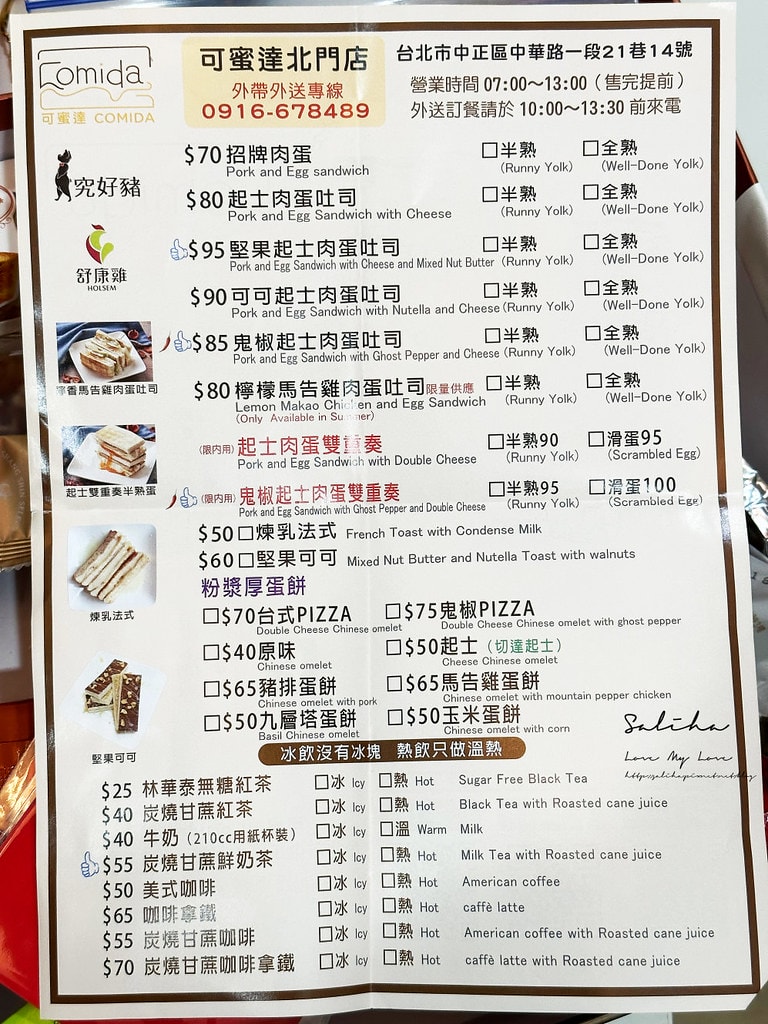 Comida
可蜜達 COMIDA
可蜜達北門店
外帶外送專線
0916-678489
台北市中正區中華路一段21巷14號
營業時間 07:00～13:00（售完提前）
外送訂餐請於 10:00～13:30 前來電
究好豬
舒康雞
HOLSEM
$70 招牌肉蛋 □半熟 □全熟
Pork and Egg sandwich (Runny Yolk) (Well-Done Yolk)
$80 起士肉蛋吐司 □半熟 □全熟
Pork and Egg Sandwich with Cheese (Runny Yolk) (Well-Done Yolk)
$95 堅果起士肉蛋吐司 □半熟 □全熟
Pork and Egg Sandwich with Cheese and Mixed Nut Butter (Runny Yolk) (Well-Done Yolk)
$90 可可起士肉蛋吐司 □半熟 □全熟
Pork and Egg Sandwich with Nutella and Cheese (Runny Yolk) (Well-Done Yolk)
$85 鬼椒起士肉蛋吐司 □半熟 □全熟
Pork and Egg Sandwich with Ghost Pepper and Cheese (Runny Yolk) (Well-Done Yolk)
$80 檸檬馬告雞肉蛋吐司限量供應 □半熟 □全熟
Lemon Makao Chicken and Egg Sandwich (Runny Yolk) (Well-Done Yolk)
(Only Available in Summer)
檸香馬告雞肉蛋吐司
(限內用) 起士肉蛋雙重奏 □半熟90 □滑蛋95
Pork and Egg Sandwich with Double Cheese (Runny Yolk) (Scrambled Egg)
起士雙重奏半熟蛋
(限內用) 鬼椒起士肉蛋雙重奏 □半熟95 □滑蛋100
Pork and Egg Sandwich with Ghost Pepper and Double Cheese (Runny Yolk) (Scrambled Egg)
$50 □煉乳法式 French Toast with Condense Milk
$60 □堅果可可 Mixed Nut Butter and Nutella Toast with walnuts
煉乳法式
粉漿厚蛋餅
□$70台式PIZZA □$75鬼椒PIZZA
Double Cheese Chinese omelet Double Cheese Chinese omelet with ghost pepper
□$40原味 □$50起士（切達起士）
Chinese omelet Cheese Chinese omelet
□$65豬排蛋餅 □$65馬告雞蛋餅
Chinese omelet with pork Chinese omelet with mountain pepper chicken
□$50九層塔蛋餅 □$50玉米蛋餅
Basil Chinese omelet Chinese omelet with corn
堅果可可
冰飲沒有冰塊 熱飲只做溫熱
Saliha
Love My Love
$25 林華泰無糖紅茶 □冰 Icy □熱 Hot Sugar Free Black Tea
$40 炭燒甘蔗紅茶 □冰 Icy □熱 Hot Black Tea with Roasted cane juice
$40 牛奶（210cc用紙杯裝） □冰 Icy □溫 Warm Milk
$55 炭燒甘蔗鮮奶茶 □冰 Icy □熱 Hot Milk Tea with Roasted cane juice
$50 美式咖啡 □冰 Icy □熱 Hot American coffee
$65 咖啡拿鐵 □冰 Icy □熱 Hot caffè latte
$55 炭燒甘蔗咖啡 □冰 Icy □熱 Hot American coffee with Roasted cane juice
$70 炭燒甘蔗咖啡拿鐵 □冰 Icy □熱 Hot caffè latte with Roasted cane juice